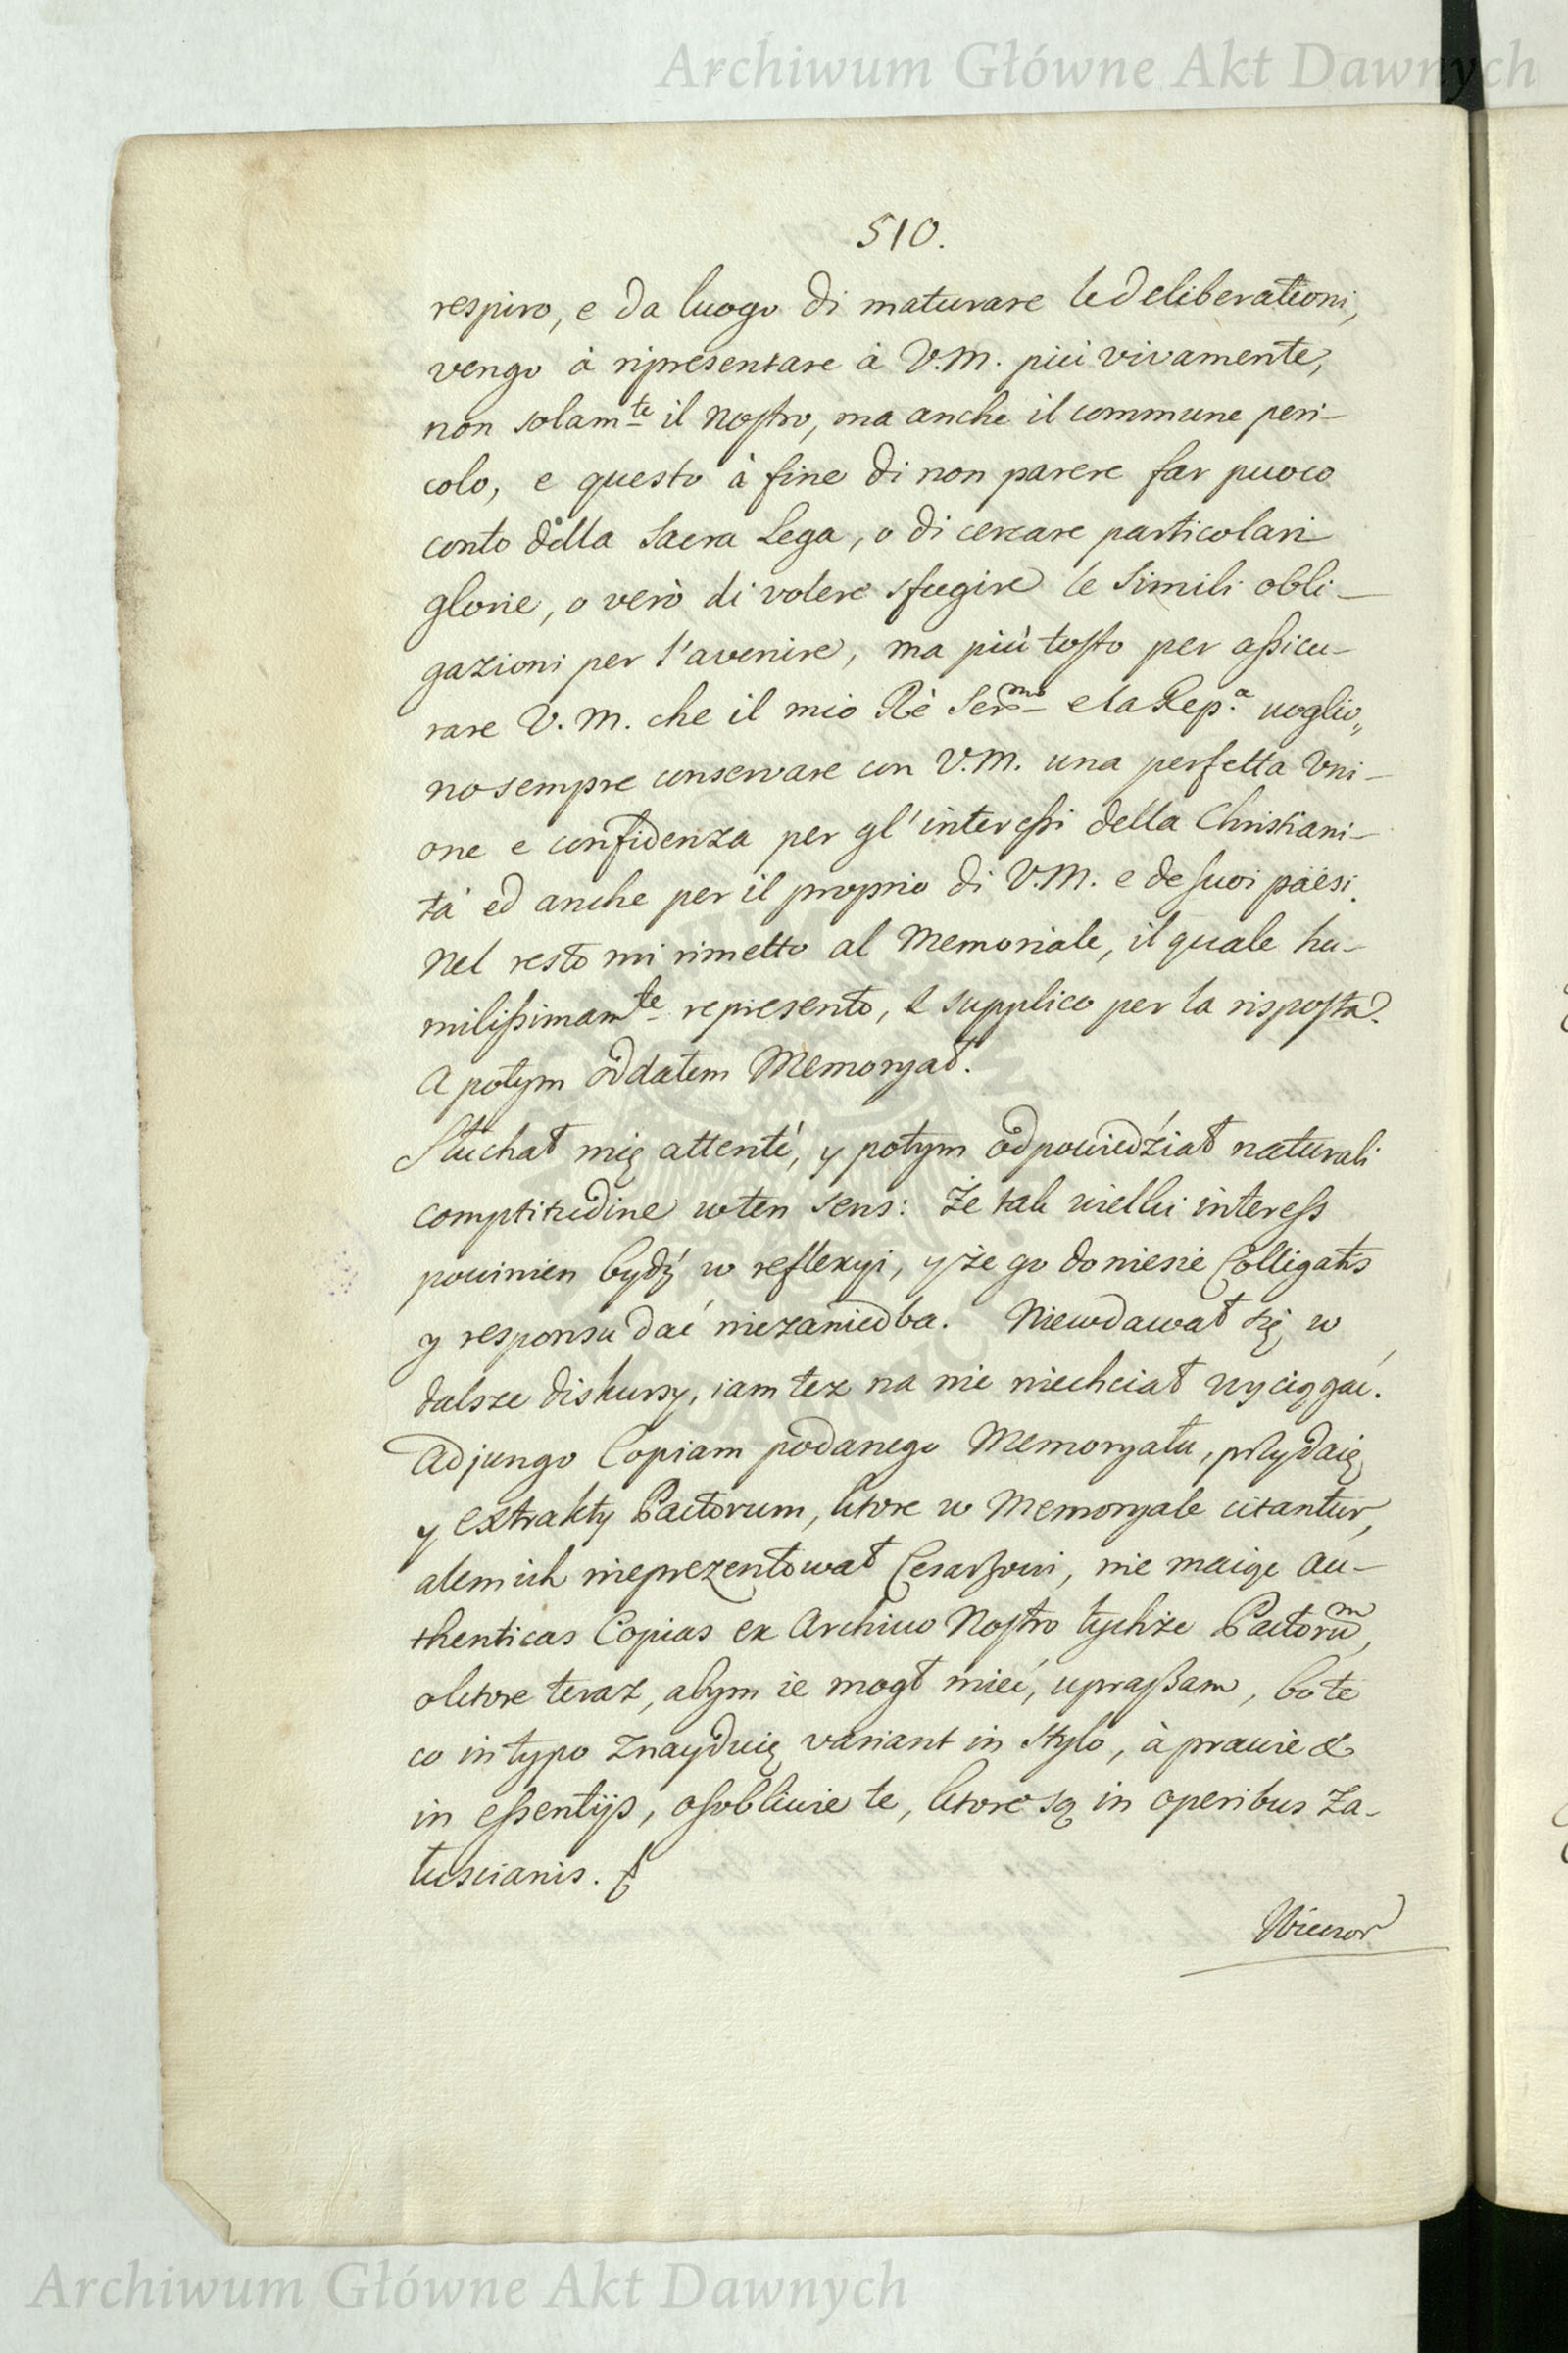 Archiwum Główne Akt Dawnych
510.
respiro, e da luogo di maturare le deliberationi,
vengo à ripresentare à V.M. più vivamente,
non solam.te il nostro, ma anche il commune peri-
colo, e questo à fine di non parere far puoco
conto della Sacra Lega, o di cercare particolari
glorie, o verò di volere sfugire le simili obli-
gazioni per l'avenire, ma più tosto per assicu-
rare V.M. che il mio Rè Ser.mo e la Rep.a uoglio,,
no sempre conservare con V.M. una perfetta Vni-
one e confidenza per gl'interessi della Christiani-
tà ed anche per il proprio di V.M. e de suoi paesi.
Nel resto mi rimetto al Memoriale, il quale hu-
milissimam.te represento, e supplico per la risposta.
A potym oddałem Memoryał.
Słuchał mię attentè, y potym odpowiedźiał naturali
comptitudine w ten sens: Że tak wielki interess
powinien bydź w reflexyi, y że go doniesie Colligatis
y responsu dać niezaniedba. Niewdawał się w
dalsze diskursy, iam tez na nie niechciał wyciągać.
Adjungo Copiam podanego Memoryału, przydaię
y extrakty Pactorum, ktore w Memoryale citantur,
alem ich nieprezentował Cesarzowi, nie maiąc au-
thenticas Copias ex Archivo Nostro tychże Pactorum,
o ktore teraz, abym ie mogł mieć, upraszam, bo te
co in typo znayduią variant in stylo, à prawie &
in essentijs, osobliwie te, ktore są in operibus Za-
łuscianis.
Wieczor
Archiwum Główne Akt Dawnych